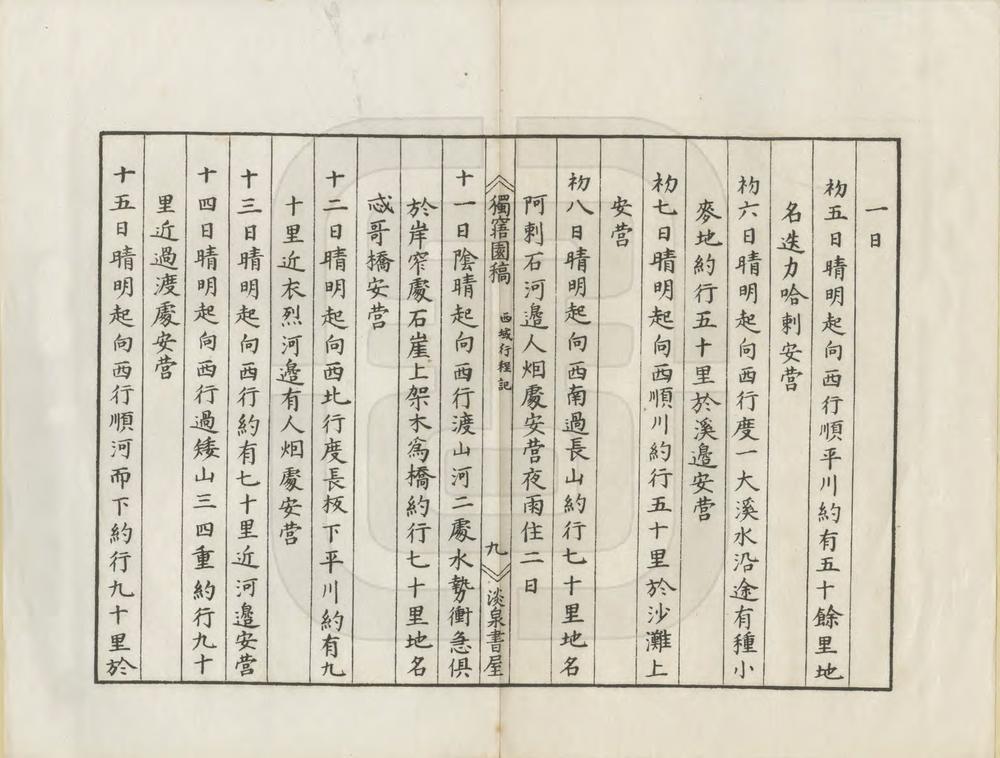 一日
初五日晴明起向西行順平川約有五十餘里地
名迭力哈剌安营
初六日晴明起向西行度一大溪水沿途有種小
麥地約行五十里於溪邉安营
初七日晴明起向西順川約行五十里於沙灘上
安营
初八日晴明起向西南過長山約行七十里地名
阿剌石河邉人烟處安营夜雨住二日
獨寤園稿 西域行程記 九 淡泉書屋
十一日陰晴起向西行渡山河二處水勢衝急俱
於岸窄處石崖上架木為橋約行七十里地名
忒哥橋安营
十二日晴明起向西北行度長坂下平川約有九
十里近衣烈河邉有人烟處安营
十三日晴明起向西行約有七十里近河邉安营
十四日晴明起向西行過矮山三四重約行九十
里近過渡處安营
十五日晴明起向西行順河而下約行九十里於